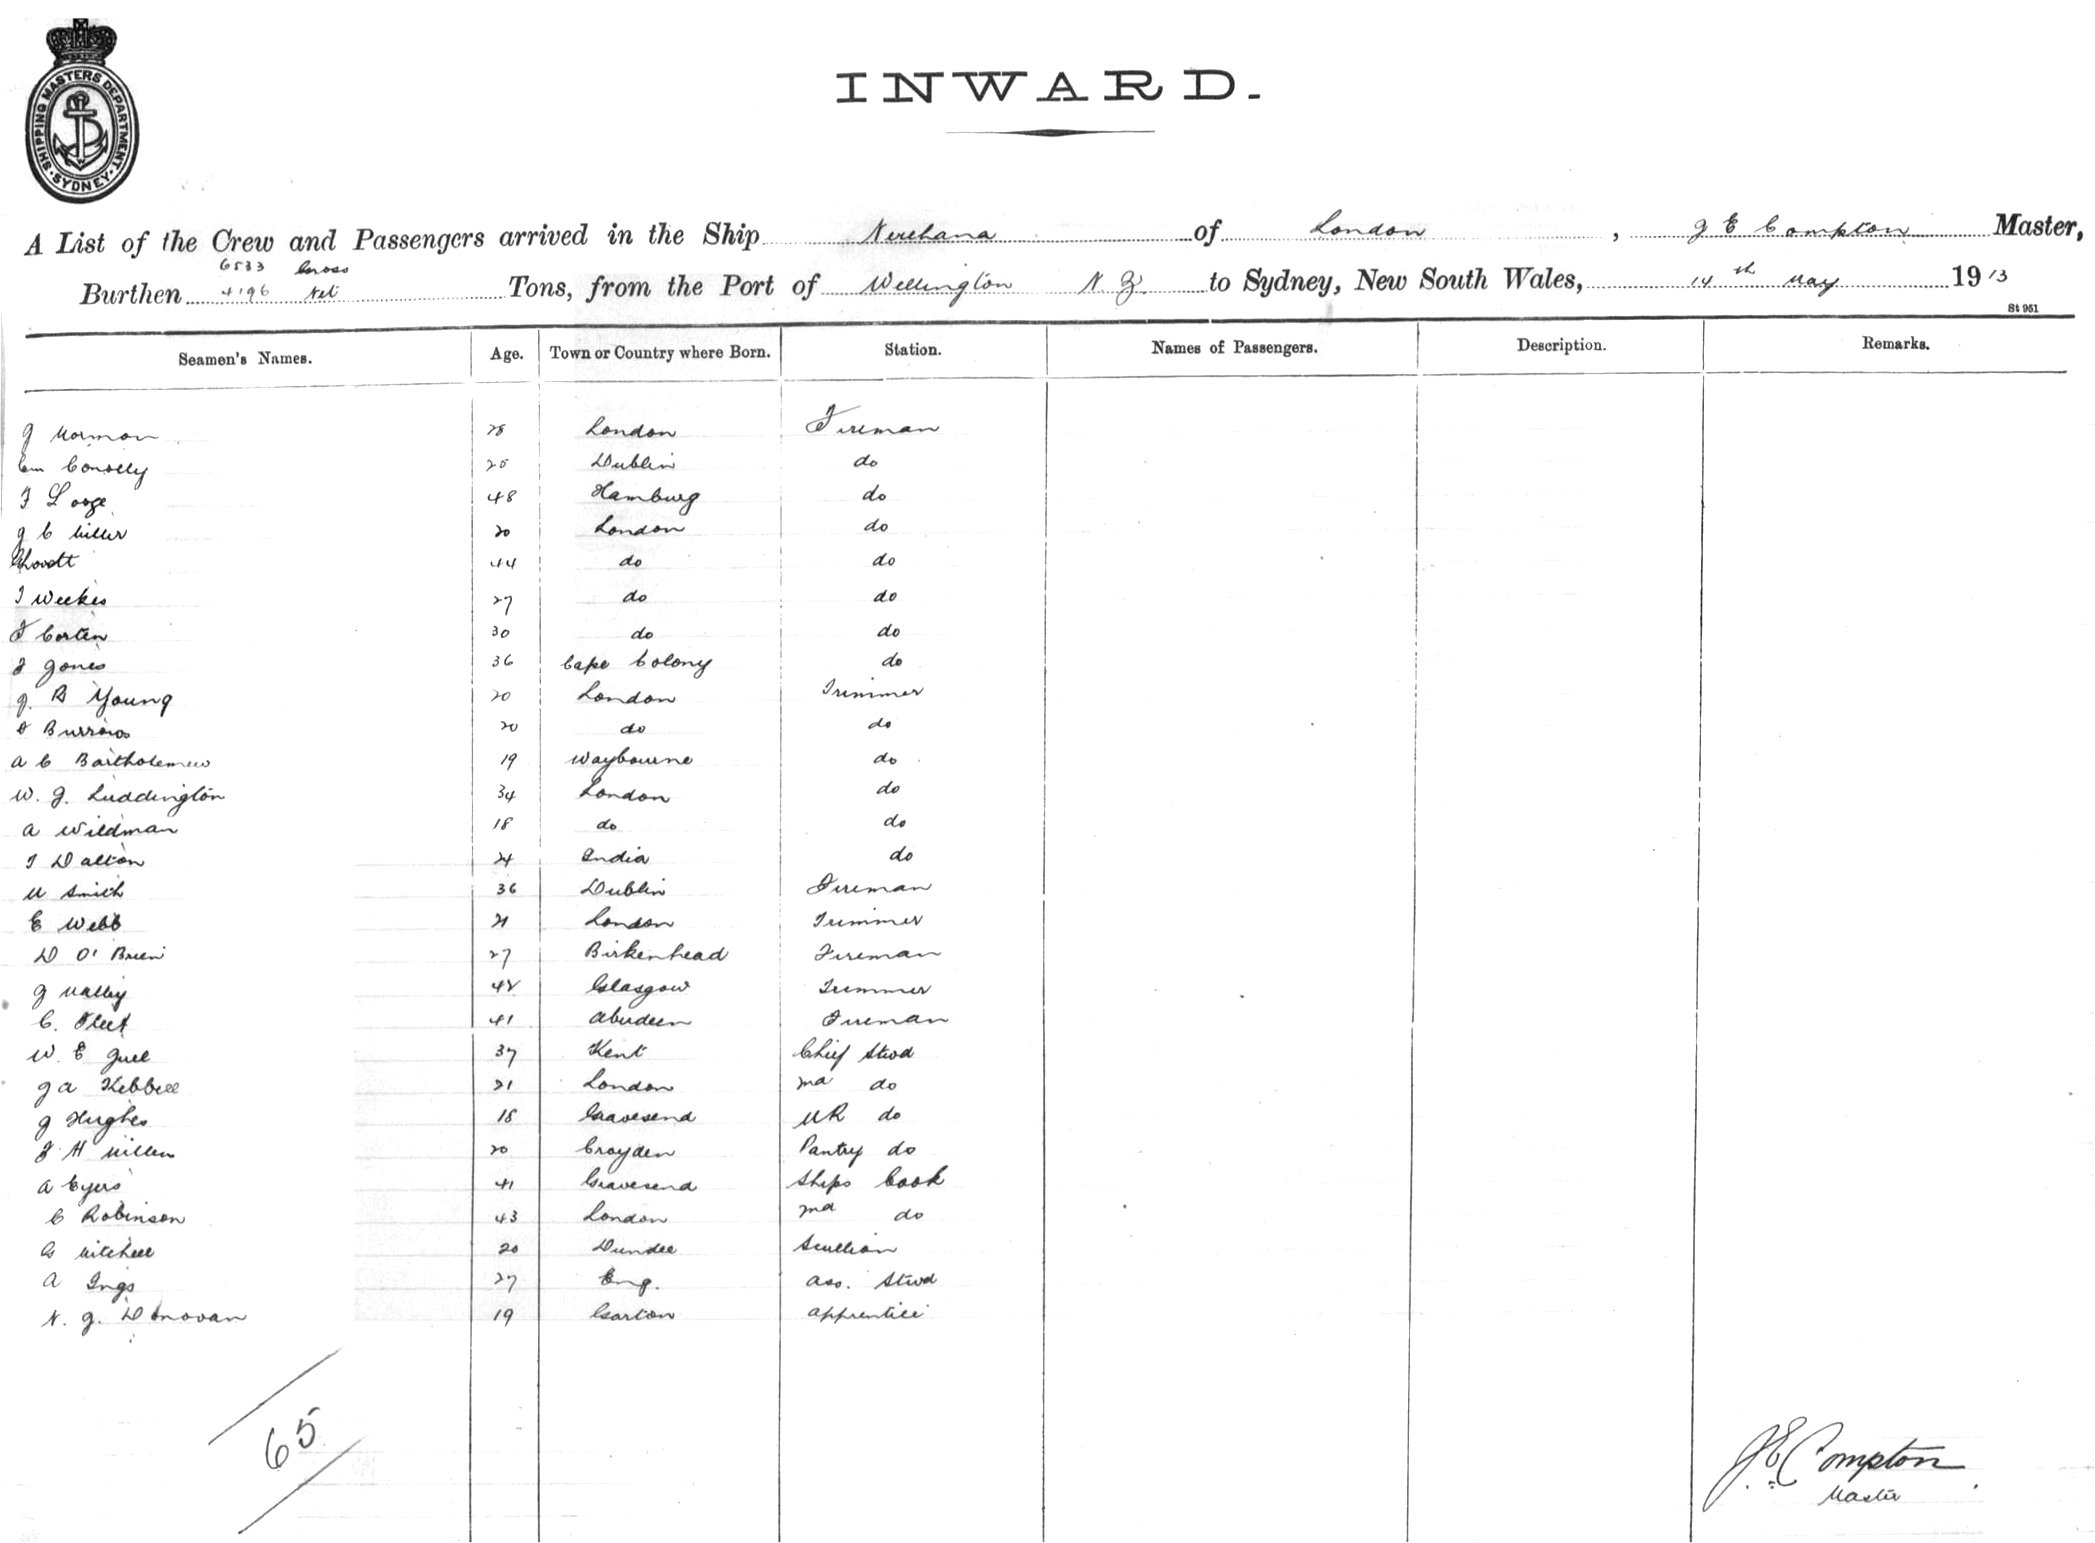 SHIPPING MASTERS DEPARTMENT. SYDNEY.
INWARD.
A List of the Crew and Passengers arrived in the Ship Neuchana of London, J E Compton Master,
6533 Gross
Burthen 4196 Net Tons, from the Port of Wellington N. Z. to Sydney, New South Wales, 14th May 1913
St 951
Seamen's Names. Age. Town or Country where Born. Station. Names of Passengers. Description. Remarks.
J Morman 28 London Fireman
Conolly 25 Dublin do
Looze 48 Hamburg do
J C Miller 20 London do
Lovett 44 do do
J Weekes 27 do do
Corten 30 do do
J Jones 36 Cape Colony do
J. R Young 20 London Trimmer
Burrows 20 do do
A C Bartholemew 19 Waybourne do
W. J. Luddington 34 London do
A Wildman 18 do do
J Dalton 24 India do
M Smith 36 Dublin Fireman
E Webb 21 London Trimmer
D O'Brien 27 Birkenhead Fireman
J Malley 42 Glasgow Trimmer
C. Fleet 41 Aberdeen Fireman
W. E Juel 37 Kent Chief Stwd
J A Kebbell 21 London 2nd do
J Hughes 18 Gravesend MR do
J H Millen 20 Croyden Pantry do
A Eyers 41 Gravesend Ships Cook
C Robinson 43 London 2nd do
G Mitchell 20 Dundee Scullion
A Ings 27 Eng. Ass. Stwd
N. J. Donovan 19 Garton Apprentice
65
J E Compton
Master